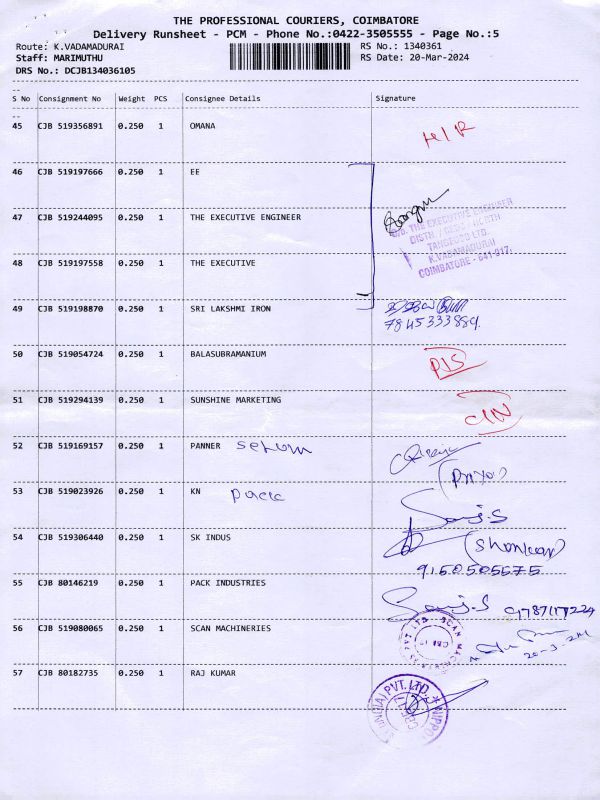 THE PROFESSIONAL COURIERS, COIMBATORE
Delivery Runsheet - PCM - Phone No.:0422-3505555 - Page No.:5
Route: K.VADAMADURAI RS No.: 1340361
Staff: MARIMUTHU RS Date: 20-Mar-2024
DRS No.: DCJB134036105
--
S No Consignment No Weight PCS Consignee Details Signature
--
45 CJB 519356891 0.250 1 OMANA
46 CJB 519197666 0.250 1 EE
47 CJB 519244095 0.250 1 THE EXECUTIVE ENGINEER
THE EXECUTIVE ENGINEER
NORTH
TANGEDCO LTD.
K.VADAMADURAI
COIMBATORE - 641 017.
48 CJB 519197558 0.250 1 THE EXECUTIVE
49 CJB 519198870 0.250 1 SRI LAKSHMI IRON
7845333889.
50 CJB 519054724 0.250 1 BALASUBRAMANIUM
51 CJB 519294139 0.250 1 SUNSHINE MARKETING
52 CJB 519169157 0.250 1 PANNER
53 CJB 519023926 0.250 1 KN
54 CJB 519306440 0.250 1 SK INDUS
9150505575
55 CJB 80146219 0.250 1 PACK INDUSTRIES
56 CJB 519080065 0.250 1 SCAN MACHINERIES
57 CJB 80182735 0.250 1 RAJ KUMAR